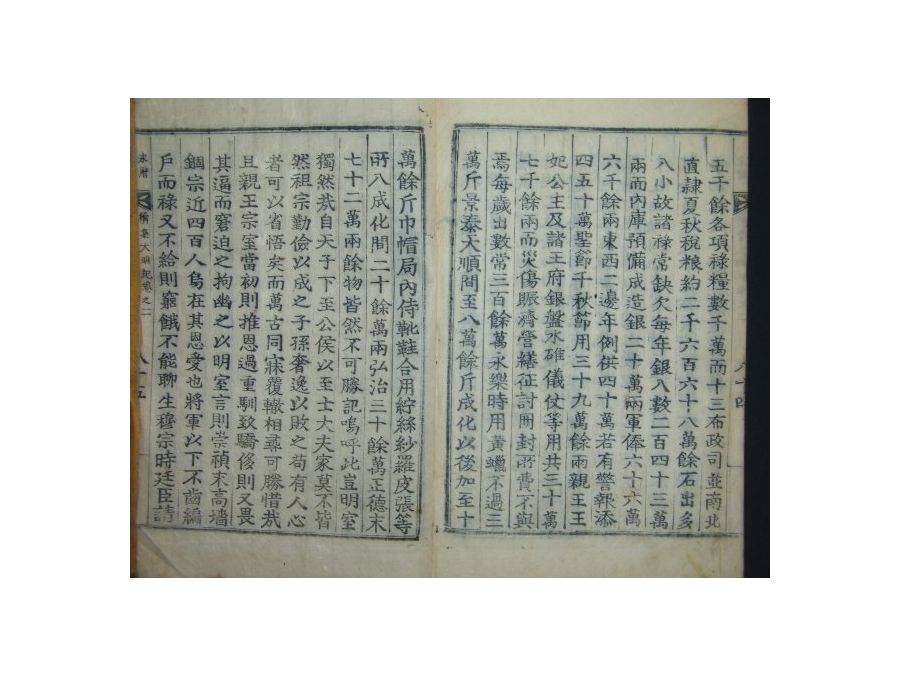 五千餘各項祿糧數千萬而十三布政司並南北
直隷夏秋稅粮約二千六百六十八萬餘石出多
入小故諸祿常缺欠每年銀入數二百四十三萬
兩而內庫預備成造銀二十萬兩軍俸六十六萬
六千餘兩東西二邊年例供四十萬若有警報添
四五十萬聖節千秋節用三十九萬餘兩親王王
妃公主及諸王府銀盤水碓儀仗等用共三十萬
七千餘兩而災傷賑濟營繕征討開封所費不與
焉每歲出數常三百餘萬永樂時用黃蠟不過三
萬斤景泰天順間至八萬餘斤成化以後加至十
八十四
萬餘斤巾帽局內侍靴鞋合用紵絲紗羅皮張等
所入成化間二十餘萬兩弘治三十餘萬正德末
七十二萬兩餘物皆然不可勝記嗚呼此豈明室
獨然哉自天子下至公侯以至士大夫家莫不皆
然祖宗勤儉以成之子孫奢逸以敗之苟有人心
者可以省悟矣而萬古同寐覆轍相尋可勝惜哉
且親王宗室當初則推恩過重馴致驕侈後則又畏
其逼而窘迫之拘幽之以明室言則崇禎末高墻
錮宗近四百人烏在其恩愛也將軍以下不齒編
戶而祿又不給則竄餓不能聊生穆宗時廷臣請
大明紀卷之二
八十五